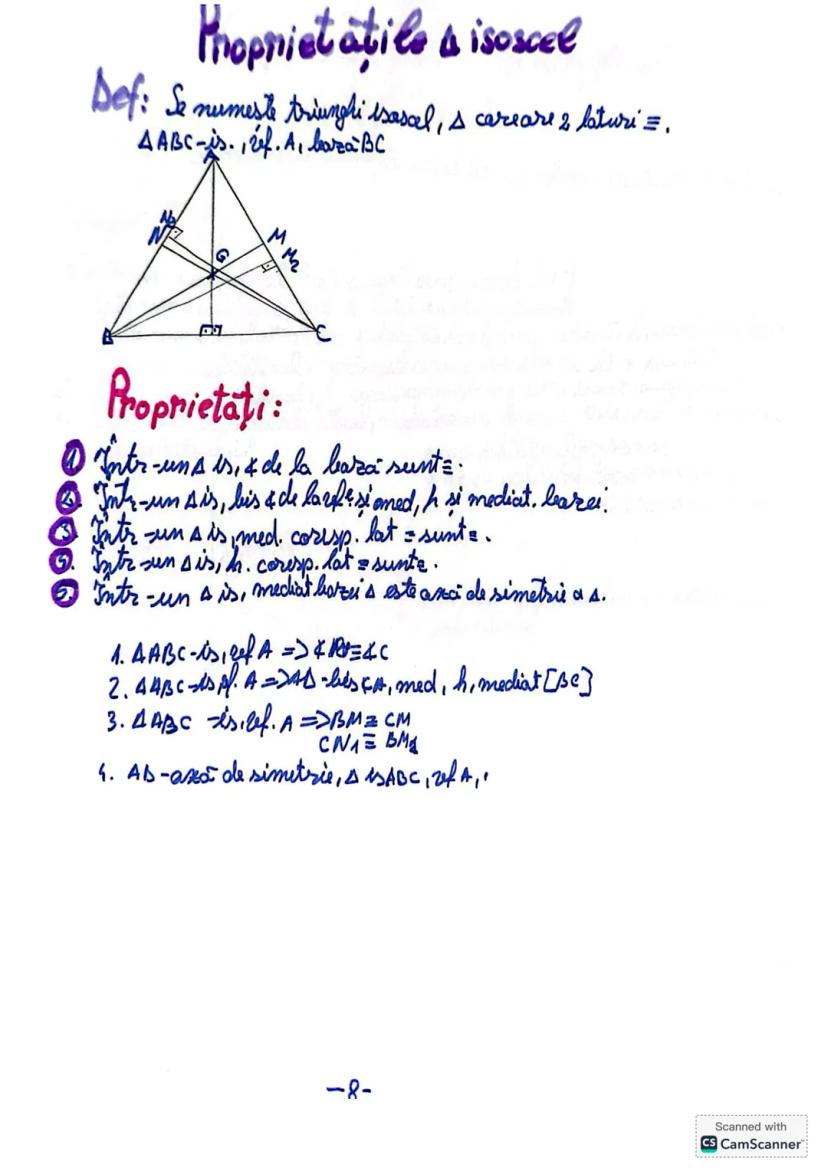 Proprietățile Δ isoscel
Def: Se numește triunghi isoscel, Δ care are 2 laturi ≡.
Δ ABC-is., vf. A, bază BC
A
N2
N
M
M2
G
B
C
Proprietăți:
1. Într-un Δ is, ∢ de la bază sunt ≡.
2. Într-un Δ is, bis ∢ de la vf e și med, h și mediat. bazei.
3. Într-un Δ is, med. coresp. lat ≡ sunt ≡.
4. Într-un Δ is, h. coresp. lat ≡ sunt ≡.
5. Într-un Δ is, mediat bazei Δ este axă de simetrie a Δ.
1. Δ ABC-is, vf A => ∢ B ≡ ∢C
2. Δ ABC-is vf. A => AD-bis ∢A, med, h, mediat [BC]
3. Δ ABC -is, vf. A => BM ≡ CM
CN1 ≡ BM1
4. AD-axă de simetrie, Δ is ABC, vf A,
-8-
Scanned with
CS CamScanner